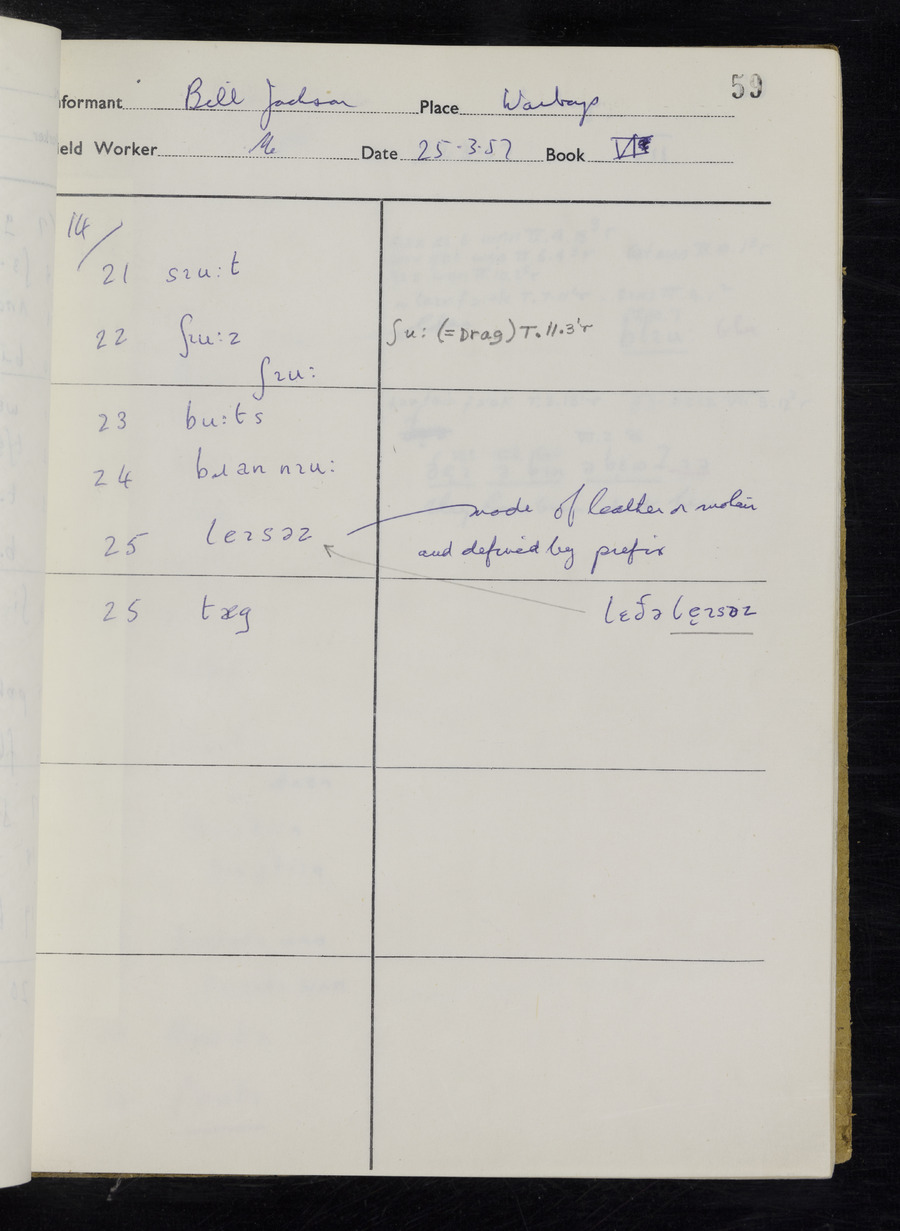 59
nformant Bill Jackson Place Warboys
ield Worker Date 25.3.57 Book VI
14/
21 sɪu:t
22 ʃɪu:z ʃu: (=Drag) T.11.3'r
ʃɪu:
23 bu:ts
24 nɪu:
25 leɪsəz made of leather or mohair
and defined by prefix
25 tæg lɛðə leɪsəz